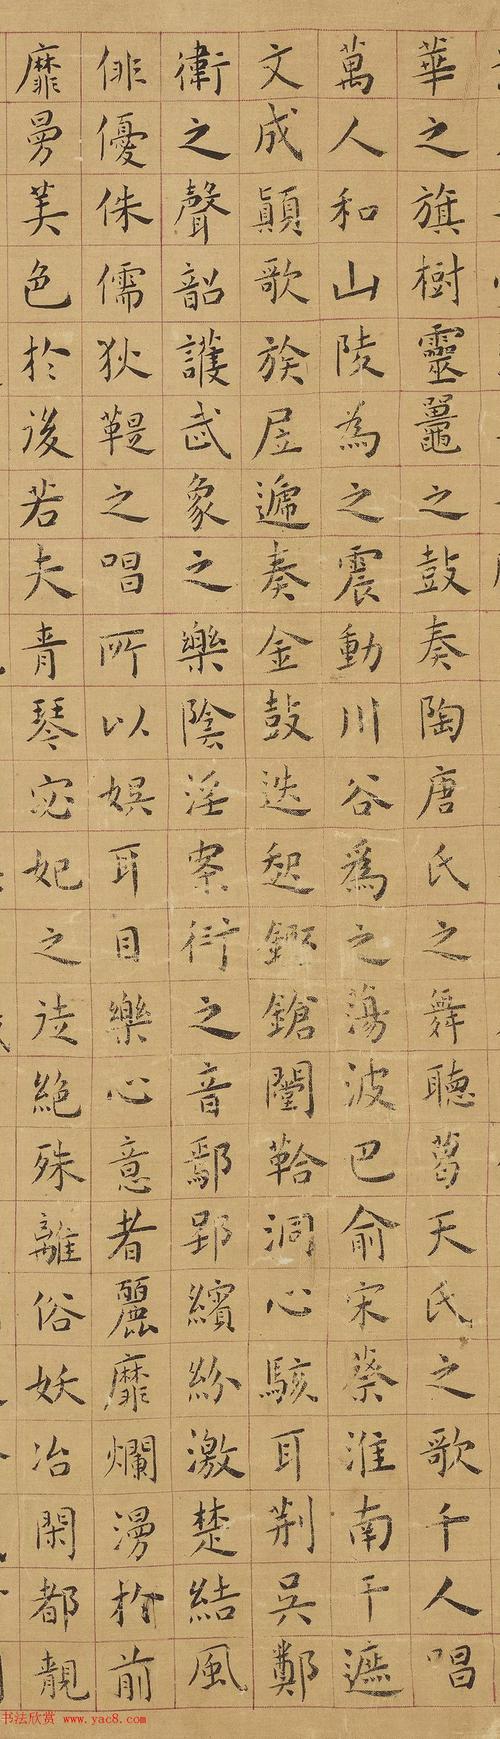 華之旗樹靈鼉之鼓奏陶唐氏之舞聽葛天氏之歌千人唱
萬人和山陵為之震動川谷爲之蕩波巴俞宋蔡淮南干遮
文成顛歌族居遞奏金鼓迭起鏗鎗闛鞈洞心駭耳荆吳鄭
衛之聲韶頀武象之樂陰淫案衍之音鄢郢繽紛激楚結風
俳優侏儒狄鞮之唱所以娯耳目樂心意者麗靡爛漫扵前
靡曼美色於後若夫青琴宓妃之徒絶殊離俗妖冶閑都靚
书法欣赏 www.yac8.com